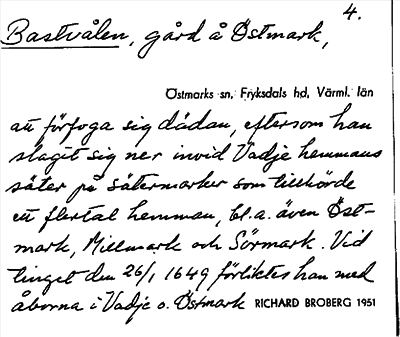 4.
Bastvålen, gård å Östmark,
Östmarks sn, Fryksdals hd, Värml. län
att förfoga sig dädan, eftersom han
slagit sig ner invid Vadje hemmans
säter på sätermarker som tillhörde
ett flertal hemman, bl.a. även Öst-
mark, Millmark och Sörmark. Vid
tinget den 26/1 1649 förliktes han med
åborna i Vadje o. Östmark RICHARD BROBERG 1951